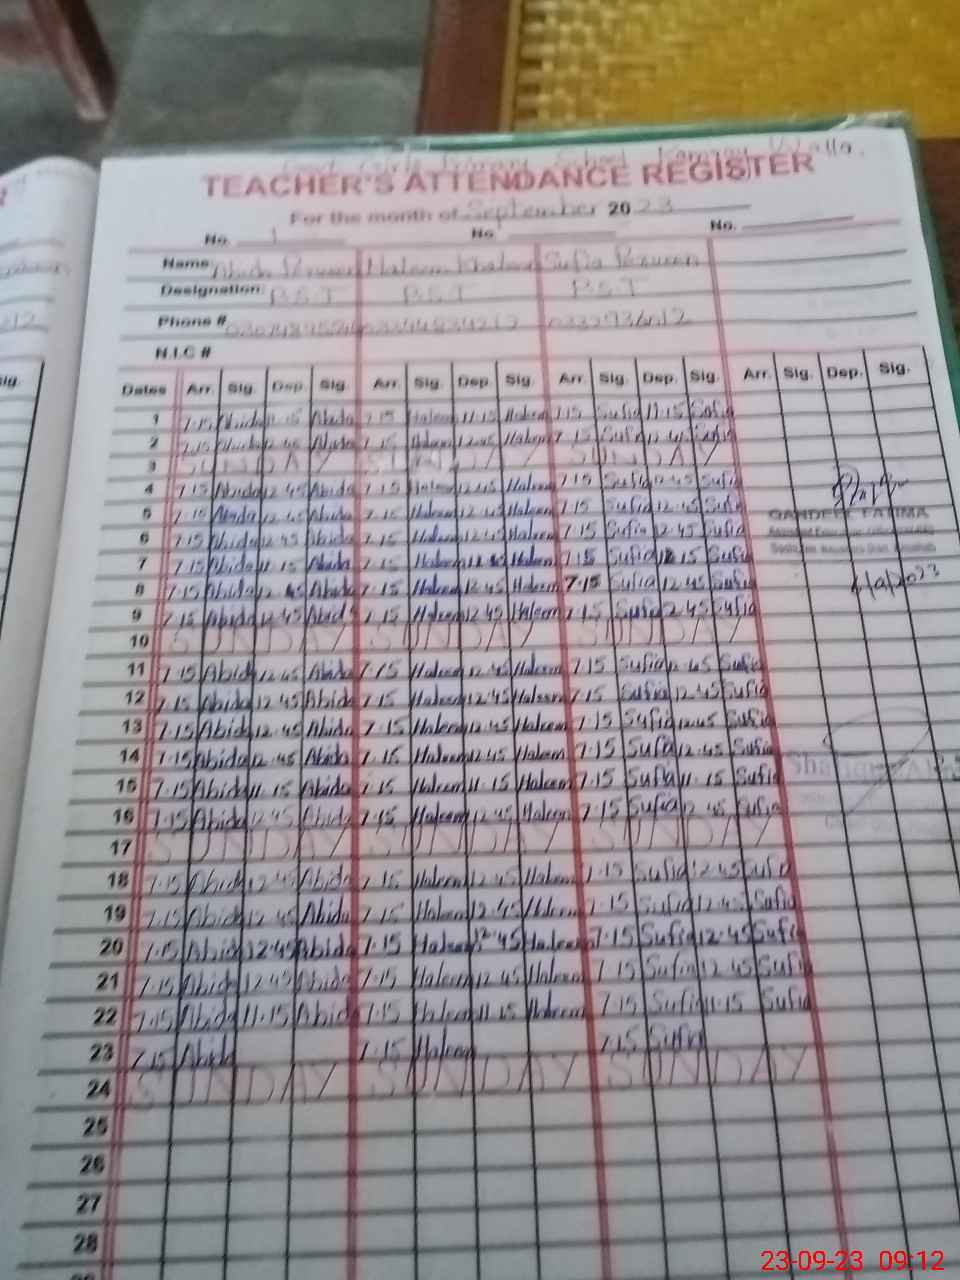 Govt Girls Primary School Walla.
TEACHER'S ATTENDANCE REGISTER
For the month of September 2023
No. 1 No. No.
Name Abida Perveen Haleem Sufia Perveen
Designation: P.S.T P.S.T P.S.T
Phone #
N.I.C #
Dates Arr. Sig. Dep. Sig. Arr. Sig. Dep. Sig. Arr. Sig. Dep. Sig. Arr. Sig. Dep. Sig.
1 7.15 Abida 11.15 Abida 7.15 Haleem 11.15 Haleem 7.15 Sufia 11.15 Sufia
2 7.15 Abida 12.45 Abida 7.15 Haleem 12.45 Haleem 7.15 Sufia 12.45 Sufia
3 SUNDAY SUNDAY SUNDAY
4 7.15 Abida 12.45 Abida 7.15 Haleem 12.45 Haleem 7.15 Sufia 12.45 Sufia
5 7.15 Abida 12.45 Abida 7.15 Haleem 12.45 Haleem 7.15 Sufia 12.45 Sufia
QANDEEL FATIMA
6 7.15 Abida 12.45 Abida 7.15 Haleem 12.45 Haleem 7.15 Sufia 12.45 Sufia
7 7.15 Abida 11.15 Abida 7.15 Haleem Haleem 7.15 Sufia 15 Sufia
8 7.15 Abida 12.45 Abida 7.15 Haleem 12.45 Haleem 7.15 Sufia 12.45 Sufia
9 7.15 Abida 12.45 Abida 7.15 Haleem 12.45 Haleem 7.15 Sufia 12.45 Sufia
10 SUNDAY SUNDAY SUNDAY
11 7.15 Abida 12.45 Abida 7.15 Haleem 12.45 Haleem 7.15 Sufia 12.45 Sufia
12 7.15 Abida 12.45 Abida 7.15 Haleem 12.45 Haleem 7.15 Sufia 12.45 Sufia
13 7.15 Abida 12.45 Abida 7.15 Haleem 12.45 Haleem 7.15 Sufia 12.45 Sufia
14 7.15 Abida 12.45 Abida 7.15 Haleem 12.45 Haleem 7.15 Sufia 12.45 Sufia
15 7.15 Abida 11.15 Abida 7.15 Haleem 11.15 Haleem 7.15 Sufia 11.15 Sufia
16 7.15 Abida 12.45 Abida 7.15 Haleem 12.45 Haleem 7.15 Sufia 12.45 Sufia
17 SUNDAY SUNDAY SUNDAY
18 7.15 Abida 12.45 Abida 7.15 Haleem 12.45 Haleem 7.15 Sufia 12.45 Sufia
19 7.15 Abida 12.45 Abida 7.15 Haleem 12.45 Haleem 7.15 Sufia 12.45 Sufia
20 7.15 Abida 12.45 Abida 7.15 Haleem 12.45 Haleem 7.15 Sufia 12.45 Sufia
21 7.15 Abida 12.45 Abida 7.15 Haleem 12.45 Haleem 7.15 Sufia 12.45 Sufia
22 7.15 Abida 11.15 Abida 7.15 Haleem 11.15 Haleem 7.15 Sufia 11.15 Sufia
23 7.15 Abida 7.15 Haleem 7.15 Sufia
24 SUNDAY SUNDAY SUNDAY
25
26
27
28
23-09-23 09:12